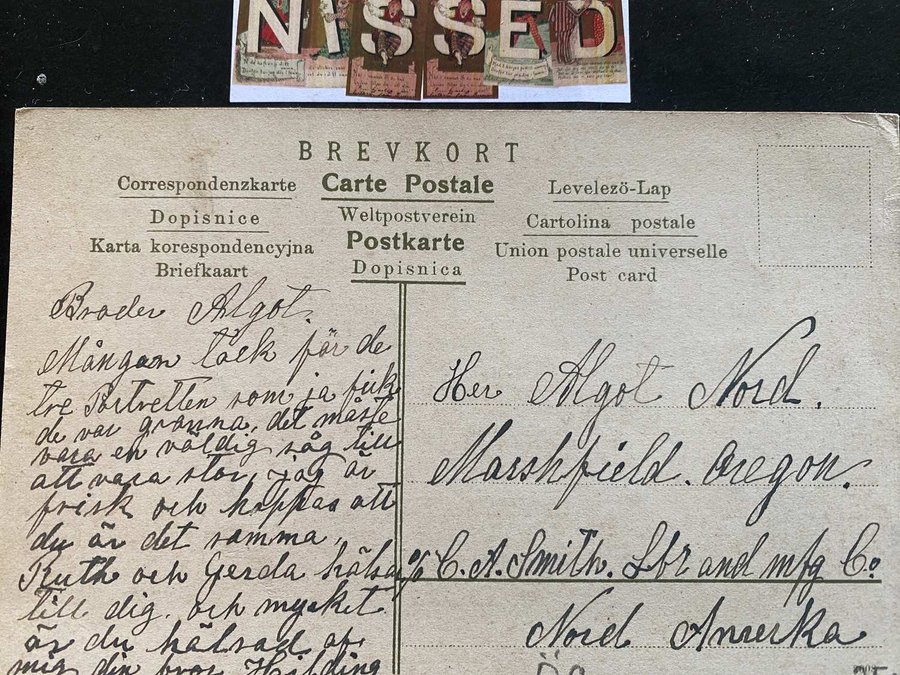 NISSED
BREVKORT
Correspondenzkarte Carte Postale Levelező-Lap
Dopisnice Weltpostverein Cartolina postale
Karta korespondencyjna Postkarte Union postale universelle
Briefkaart Dopisnica Post card
Broder Algot.
Mången tack för de
tre Portretten som ja fick
de var granna, det måste
vara en väldig såg till
att vara stor, jag är
frisk och hoppas att
du är det samma,
Ruth och Gerda hälsa
till dig. och mycket
är du hälsad af
mig din bror Hilding
Her Algot Nord.
Marshfield. Oregon.
c/o C. A. Smith. Lbr and mfg Co
Nord Amerka